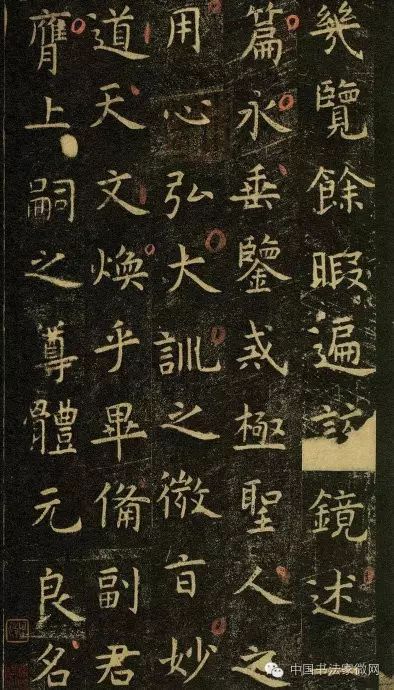 幾覽餘暇遍鏡述
篇永垂鑒戒極聖人之
用心弘大訓之微旨妙
道天文煥乎畢備副君
膺上嗣之尊體元良名
中国书法家微网